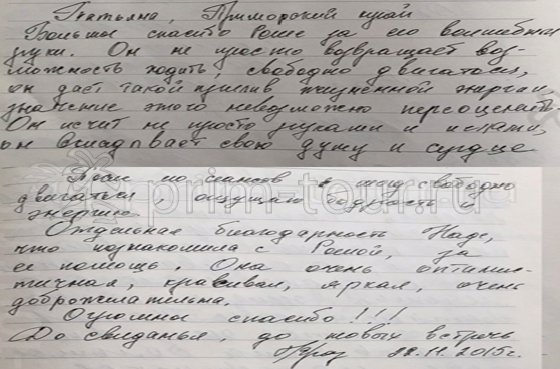 Татьяна, Приморский край
Большое спасибо Роше за его волшебные
руки. Он не просто возвращает воз-
можность ходить, свободно двигаться,
он дает такой прилив жизненной энергии,
значение этого невозможно переоценить.
Он лечит не просто руками и иглами,
он вкладывает свою душу и сердце.
После 10 сеансов я могу свободно
двигаться, ощущаю бодрость
энергию.
Отдельная благодарность Наде,
что познакомила с Рошой, за
ее помощь. Она очень оптими-
стичная, красивая, яркая, очень
доброжелательна.
Огромное спасибо!!!
До свиданья, до новых встреч
22.11.2015г.
prim-tour.ru